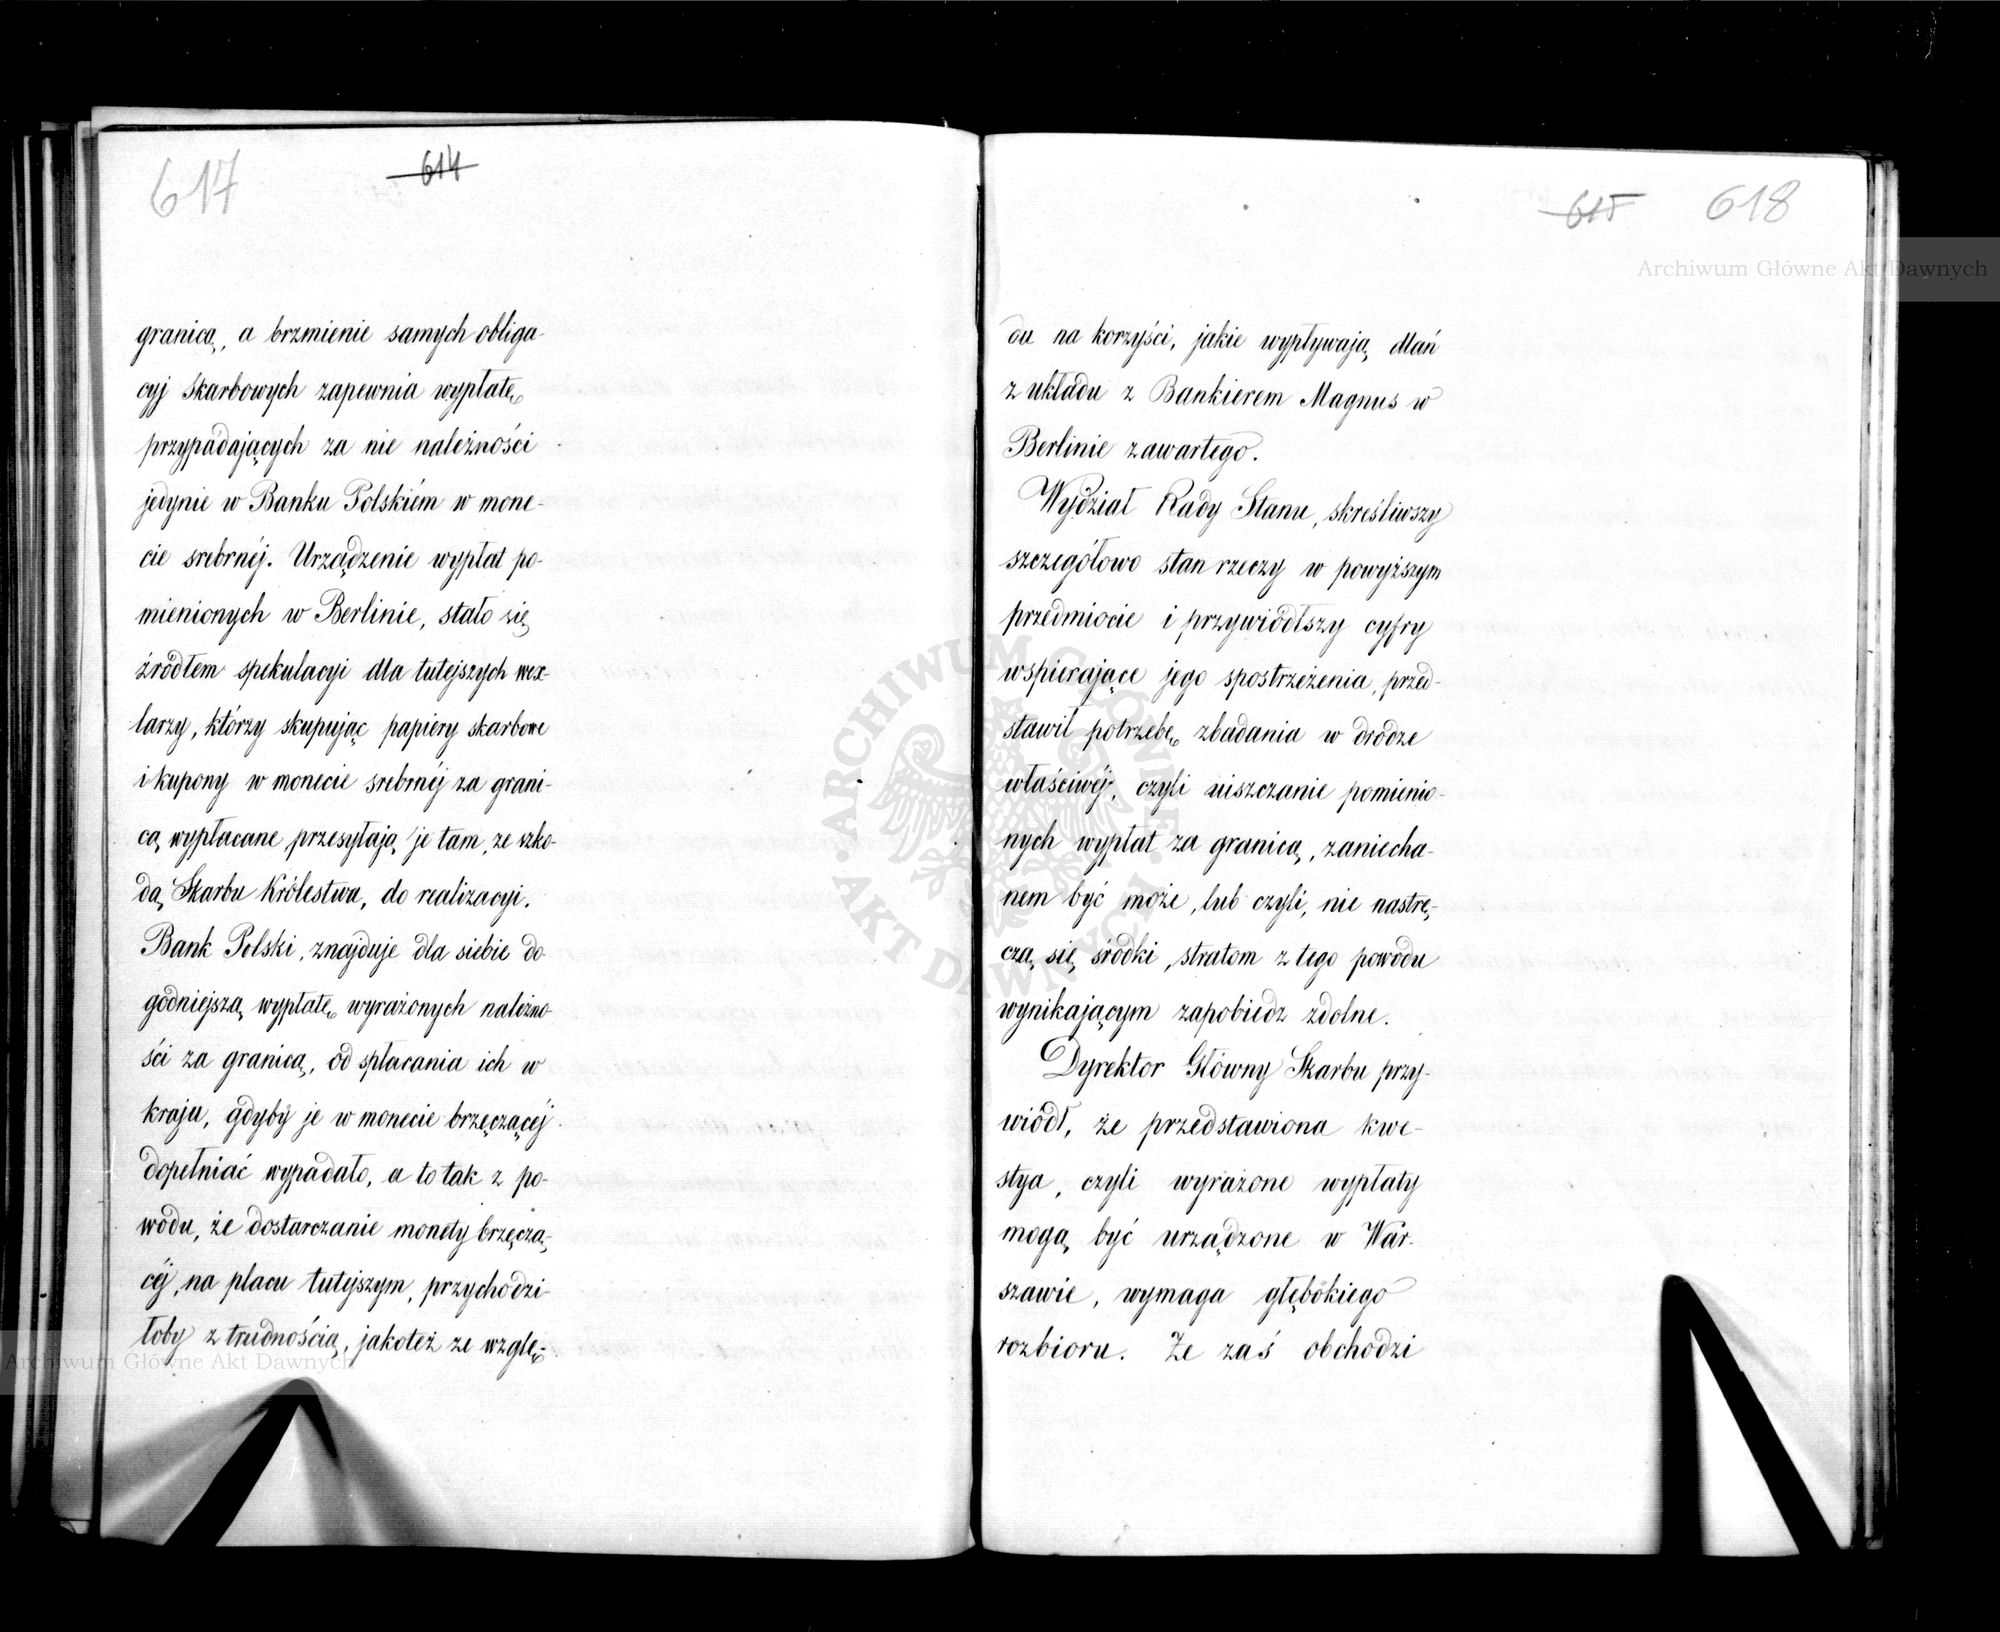 617
614
granicą, a brzmienie samych obliga-
cyj skarbowych zapewnia wypłatę
przypadających za nie należności
jedynie w Banku Polskiém w mone-
cie srebrnéj. Urządzenie wypłat po-
mienionych w Berlinie, stało się
źródłem spekulacyi dla tutejszych wex-
larzy, którzy skupując papiery skarbowe
i kupony w monecie srebrnéj za grani-
cą wypłacane przesyłają je tam, ze szko-
dą Skarbu Królestwa, do realizacyi.
Bank Polski, znajduje dla siebie do-
godniejszą wypłatę wyrażonych należno-
ści za granicą, od spłacania ich w
kraju, gdyby je w monecie brzęczącéj
dopełniać wypadało, a to tak z po-
wodu, że dostarczanie monety brzęczą-
céj, na placu tutejszym, przychodzi-
łoby z trudnością, jakoteż ze wzglę-
615
618
Archiwum Główne Akt Dawnych
du na korzyści, jakie wypływają dlań
z układu z Bankierem Magnus w
Berlinie zawartego.
Wydział Rady Stanu, skreśliwszy
szczegółowo stan rzeczy w powyższym
przedmiocie i przywiódłszy cyfry
wspierające jego spostrzeżenia, przed-
stawił potrzebę zbadania w drodze
właściwéj, czyli uiszczanie pomienio-
nych wypłat za granicą, zaniecha-
nem być może, lub czyli, nie nastrę-
czą się środki, stratom z tego powodu
wynikającym zapobiedz zdolne.
Dyrektor Główny Skarbu przy-
wiódł, że przedstawiona kwe-
stya, czyli wyrażone wypłaty
mogą być urządzone w War-
szawie, wymaga głębokiego
rozbioru. Że zaś obchodzi
ARCHIWUM GŁÓWNE AKT DAWNYCH
Archiwum Główne Akt Dawnych